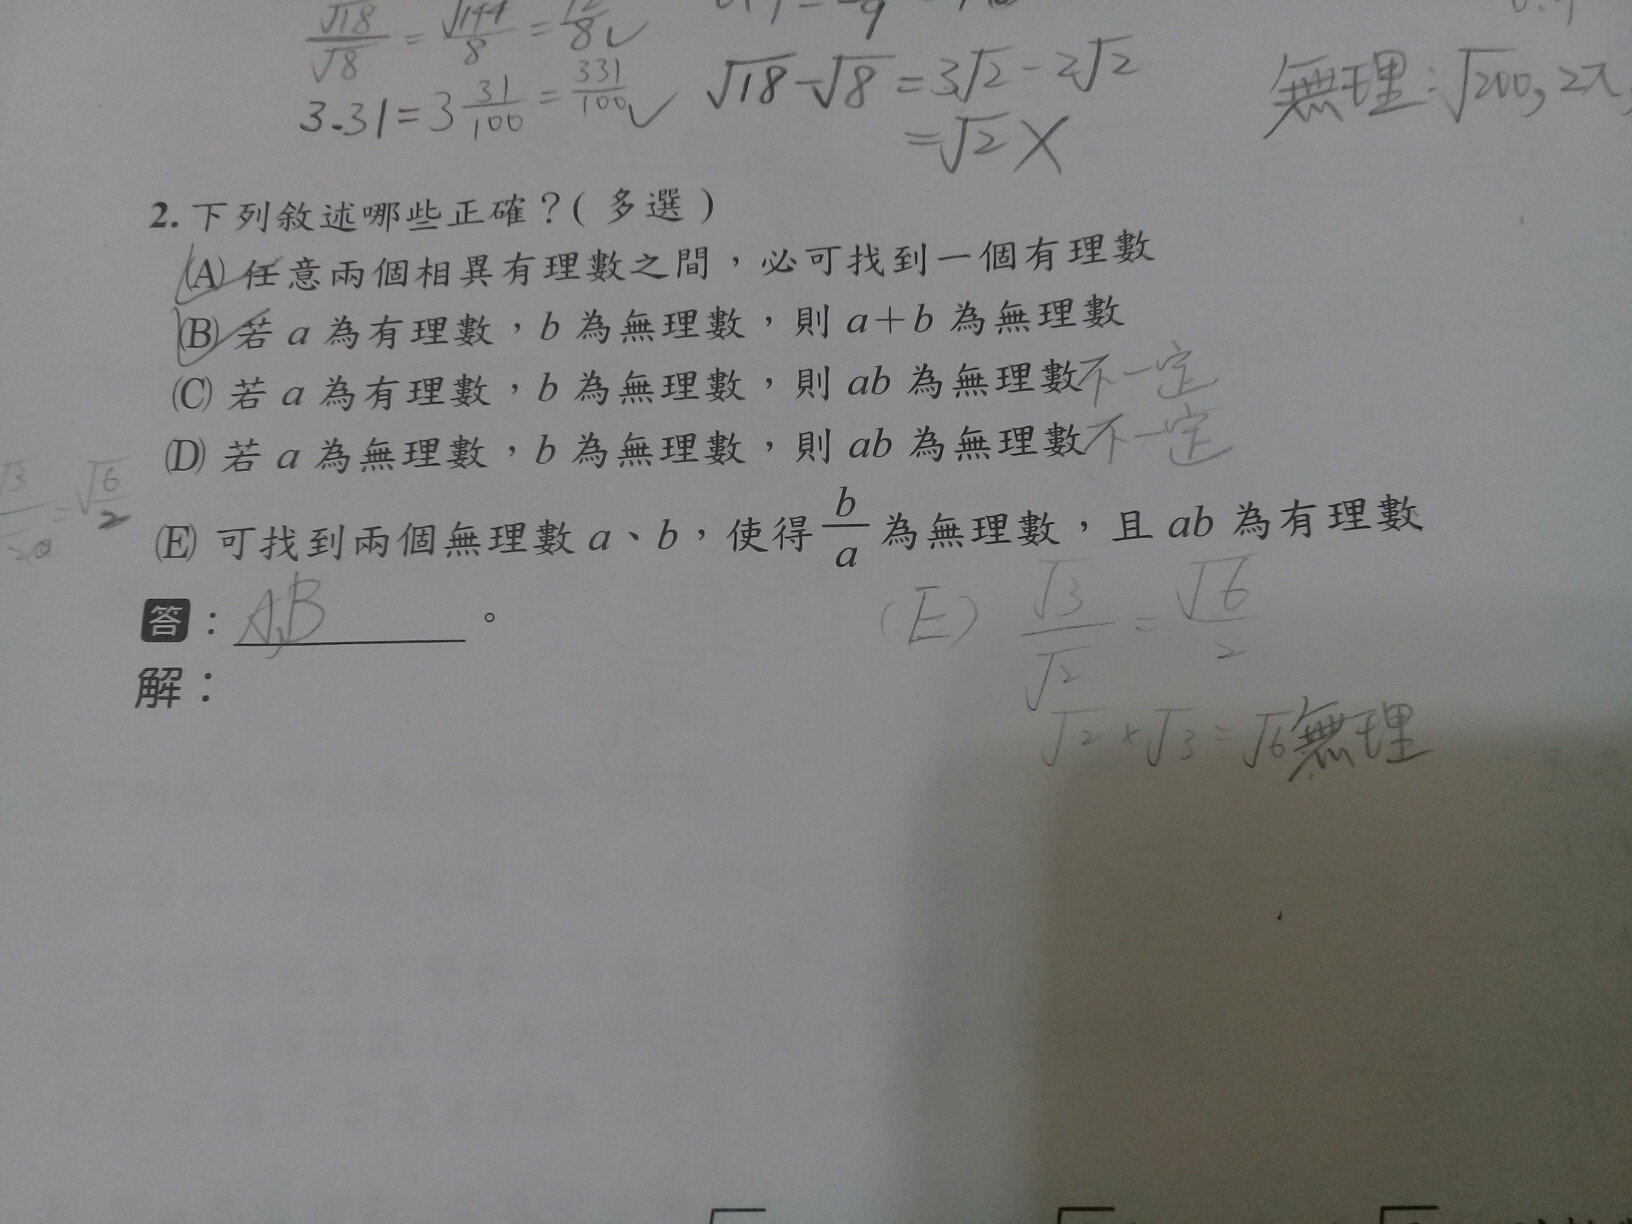 √18/√8 = √144/8 = 12/8 ✓
3.31 = 3 31/100 = 331/100 ✓
√18 - √8 = 3√2 - 2√2
= √2 X
無理:√200, 2π,
2. 下列敘述哪些正確?( 多選 )
(A) 任意兩個相異有理數之間,必可找到一個有理數
(B) 若 a 為有理數,b 為無理數,則 a+b 為無理數
(C) 若 a 為有理數,b 為無理數,則 ab 為無理數 不一定
(D) 若 a 為無理數,b 為無理數,則 ab 為無理數 不一定
= √6/2
(E) 可找到兩個無理數 a、b,使得 b/a 為無理數,且 ab 為有理數
答: A,B 。
(E) √3/√2 = √6/2
解:
√2 × √3 = √6 無理